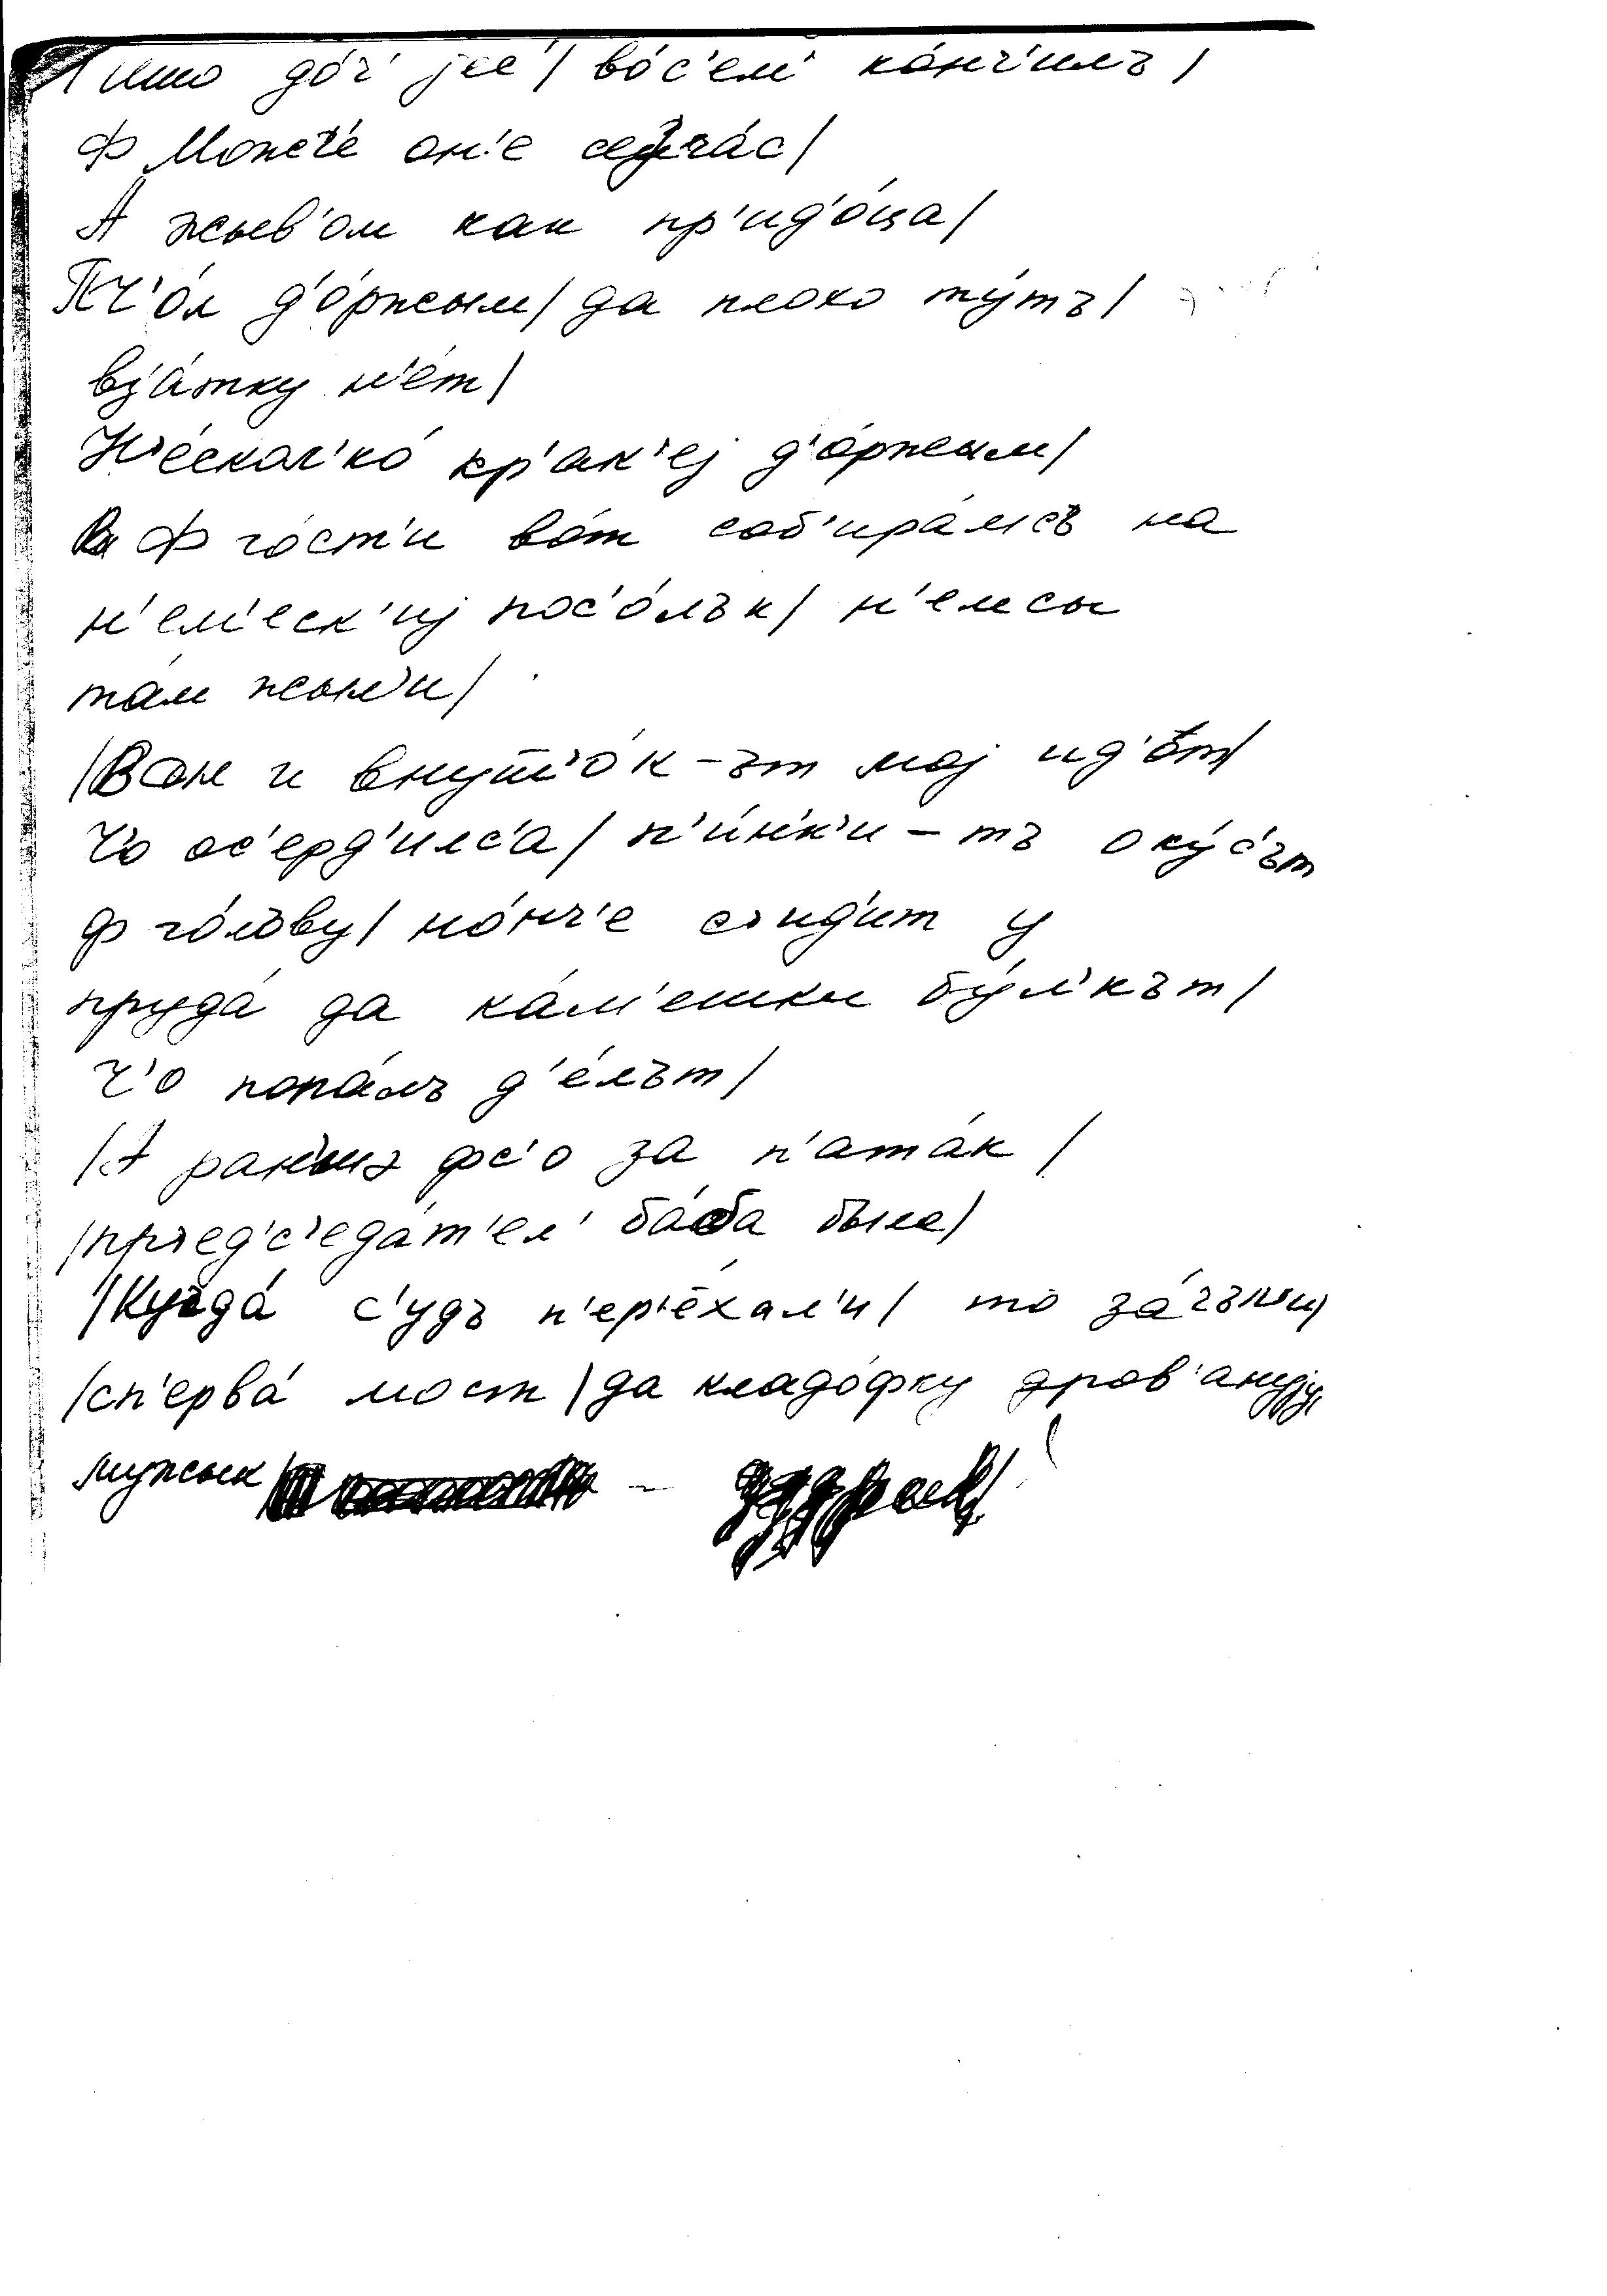 / што до́ч' jее́ / во́с'ем' ко́нч'илъ /
Ф Можг'е́ он'е сейча́с /
А жыв'ом как пр'ид'о́ца /
Пч'о́л д'о́ржым / да плохо ту́тъ /
взjа́тку н'е́т /
Н'е́скол'ко кр'ак'еj д'о́ржым /
Ф го́ст'и во́т соб'ира́мсъ на
н'ем'еск'иj пос'о́лък / н'емсы
та́м жыл'и /
/ Вон и внуч'о́к-ът моj ид'о́т /
Ч'о ос'ерд'илс'а / п'и́н'к'и-тъ оку́с'ът
ф го́лъву / но́нч'е с'ид'ит у
пруда́ да ка́м'ешки бу́л'кът /
Ч'о попа́лъ д'е́лът /
/ А ран'шэ фс'о за п'ата́к /
/ пр'ед'с'еда́т'ел' ба́ба была /
/ Кугда́ с'удъ п'ер'е́хал'и / то за́гъл'и
/ сп'ерва́ мост / да кладо́фку дров'ануjу
мужык